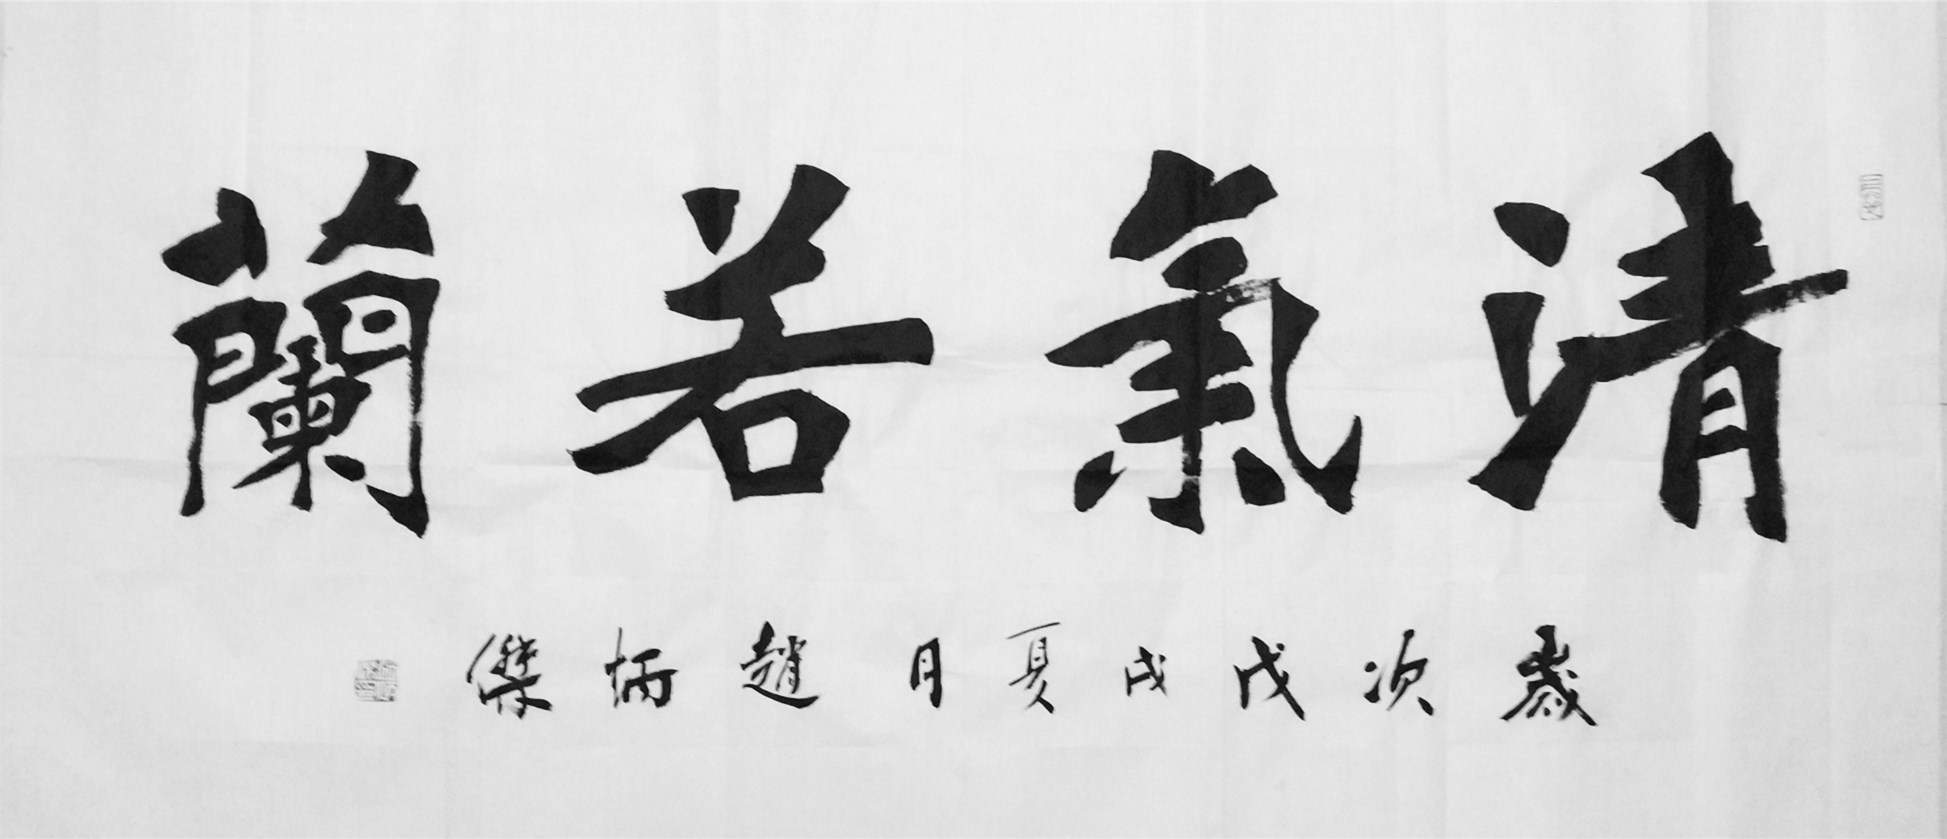 清氣若蘭
歲次戊戌夏月趙炳傑